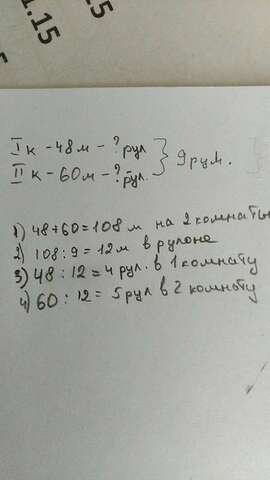 1.15
.15
I к - 48 м - ? рул
II к - 60 м - ? рул.
9 рул.
1) 48 + 60 = 108 м на 2 комнаты
2) 108 : 9 = 12 м в рулоне
3) 48 : 12 = 4 рул. в 1 комнату
4) 60 : 12 = 5 рул в 2 комнату